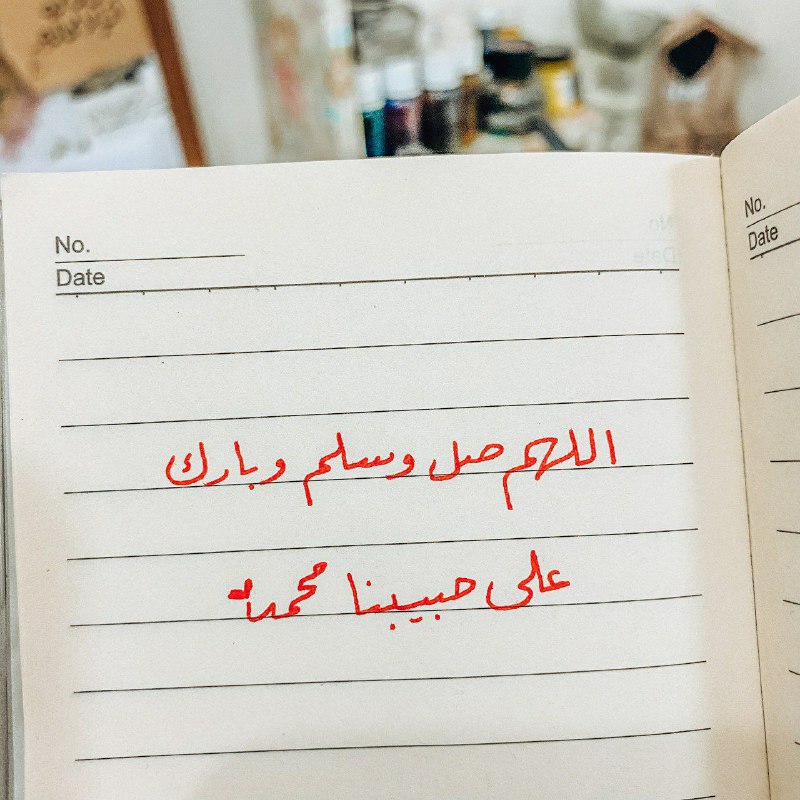 No.
Date
اللهم صل وسلم وبارك
على حبيبنا محمد
No.
Date